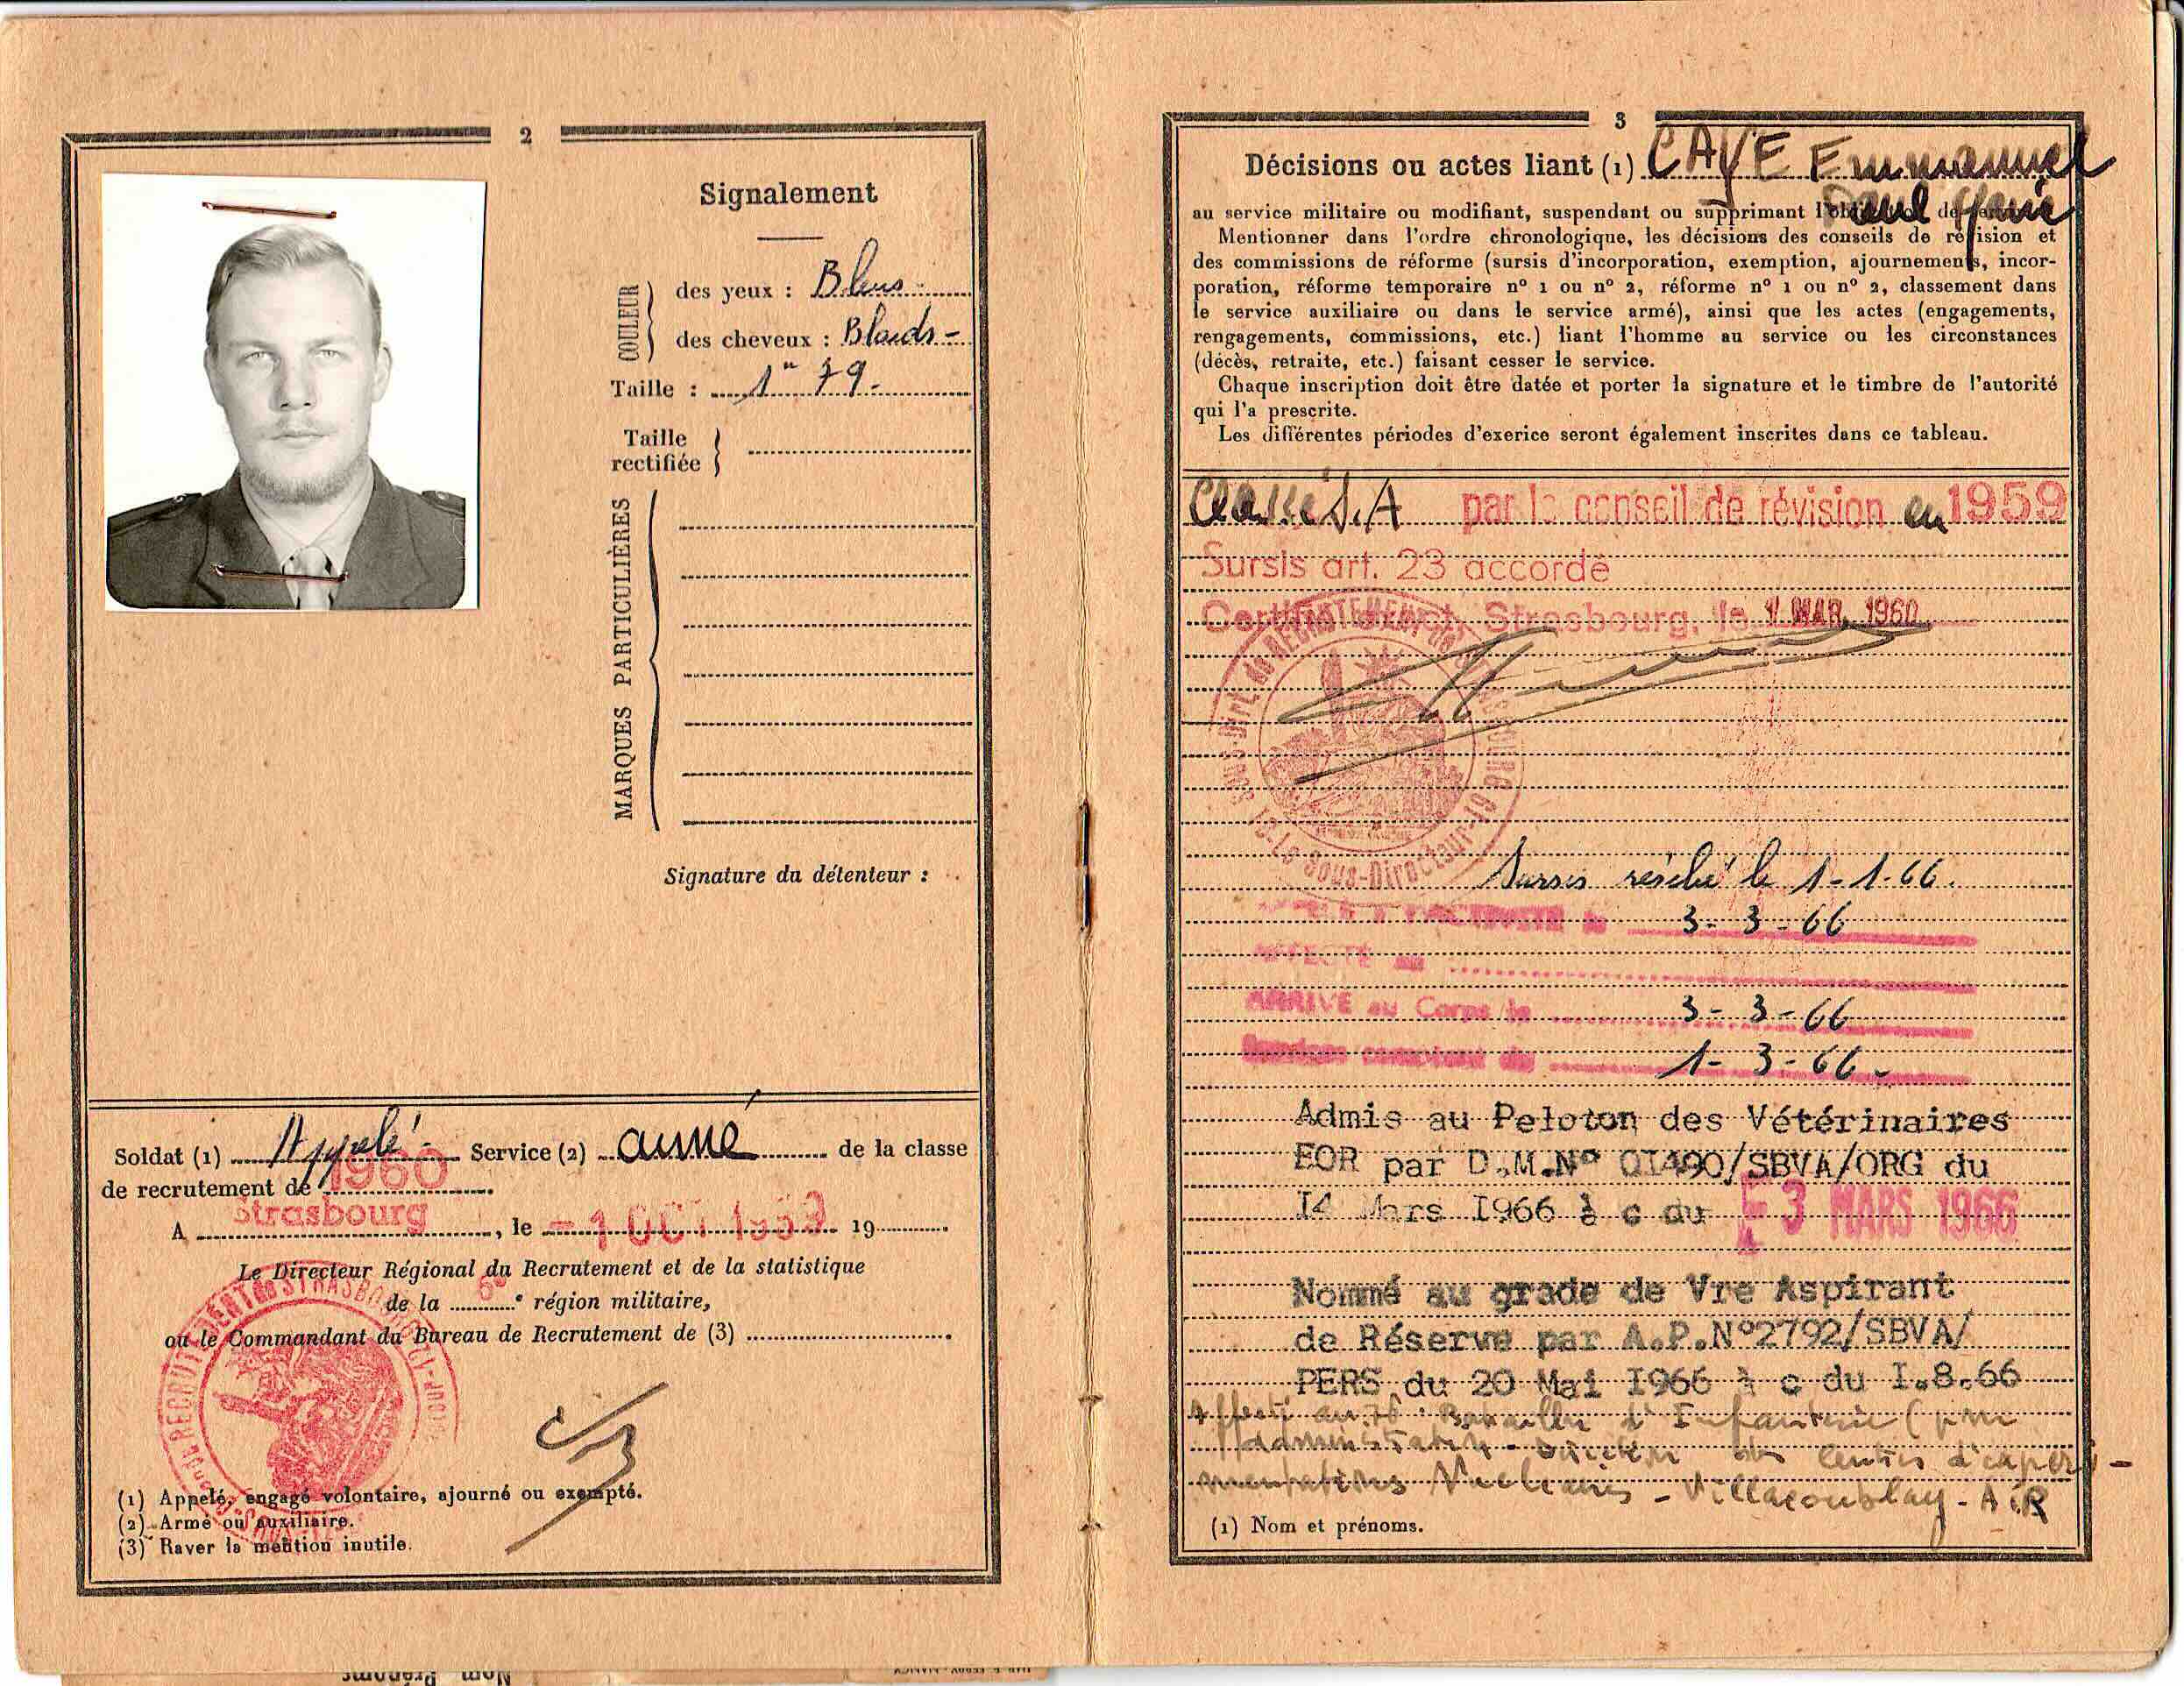 2
Signalement
COULEUR
des yeux : Bleus
des cheveux : Blonds -
Taille : 1 m 79 -
Taille
rectifiée
MARQUES PARTICULIÈRES
Signature du détenteur :
Soldat (1) Appelé - Service (2) armé de la classe
de recrutement de 1960
A Strasbourg, le - 1 OCT 1959 19
Le Directeur Régional du Recrutement et de la statistique
de la 6e e région militaire,
ou le Commandant du Bureau de Recrutement de (3)
(1) Appelé, engagé volontaire, ajourné ou exempté.
(2) Armé ou auxiliaire.
(3) Rayer la mention inutile.
3
Décisions ou actes liant (1) CAYE Emmanuel
Paul Marie
au service militaire ou modifiant, suspendant ou supprimant l'obligation de servir.
Mentionner dans l'ordre chronologique, les décisions des conseils de révision et
des commissions de réforme (sursis d'incorporation, exemption, ajournements, incor-
poration, réforme temporaire nº 1 ou nº 2, réforme nº 1 ou nº 2, classement dans
le service auxiliaire ou dans le service armé), ainsi que les actes (engagements,
rengagements, commissions, etc.) liant l'homme au service ou les circonstances
(décès, retraite, etc.) faisant cesser le service.
Chaque inscription doit être datée et porter la signature et le timbre de l'autorité
qui l'a prescrite.
Les différentes périodes d'exerice seront également inscrites dans ce tableau.
Classé S.A par le conseil de révision en 1959
Sursis art. 23 accordé
Strasbourg, le 1 MAR. 1960
Sursis résilié le 1-1-66.
3-3-66
AFFECTÉ au
ARRIVE au Corps le 3-3-66
1-3-66-
Admis au Peloton des Vétérinaires
EOR par D.M.Nº 01490/SBVA/ORG du
I4 Mars I966 à c du - 3 MARS 1966
Nommé au grade de Vre Aspirant
de Réserve par A.P.Nº2792/SBVA/
PERS du 20 Mai I966 à c du I.8.66
Affecté au Bataillon d'Infanterie (pour
administration - Direction des Centres d'expéri-
mentations Nucléaires - Villacoublay - AIR
(1) Nom et prénoms.
Nom Prénoms